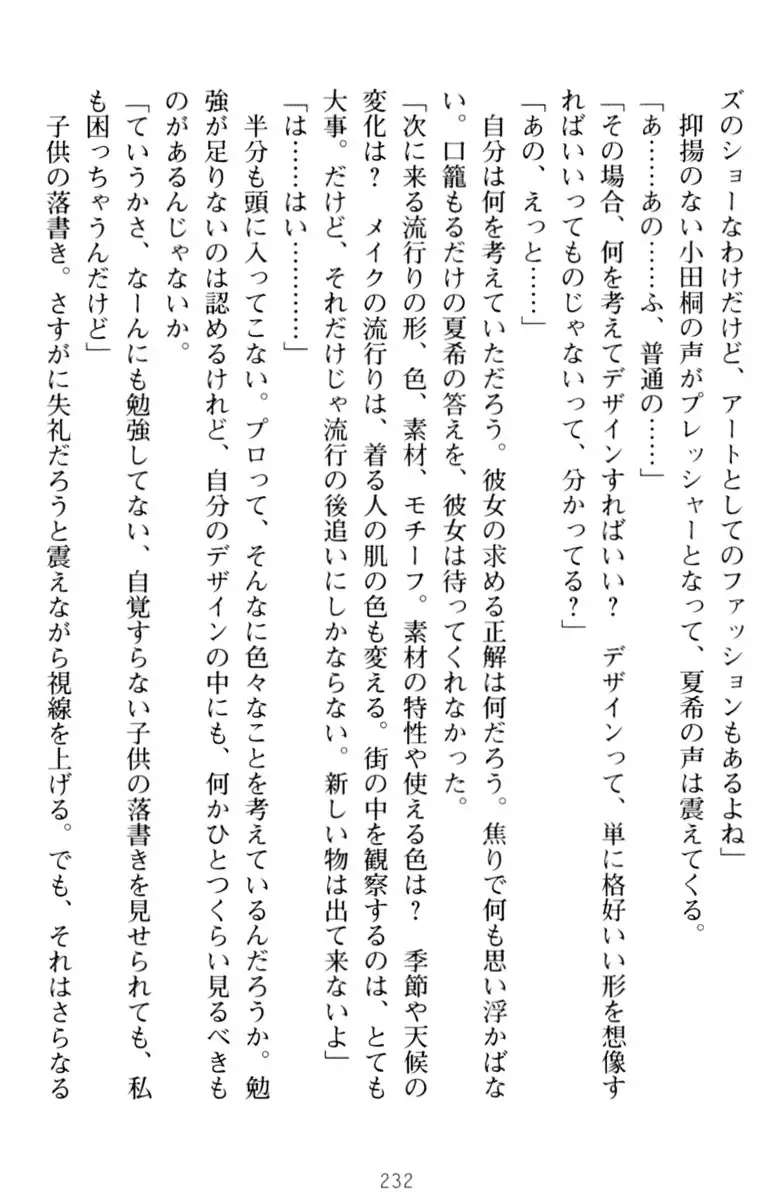 ズのショーなわけだけど、アートとしてのファッションもあるよね」
　抑揚のない小田桐の声がプレッシャーとなって、夏希の声は震えてくる。
「あ……あの……ふ、普通の……」
「その場合、何を考えてデザインすればいい？　デザインって、単に格好いい形を想像す
ればいいってものじゃないって、分かってる？」
「あの、えっと……」
　自分は何を考えていただろう。彼女の求める正解は何だろう。焦りで何も思い浮かばな
い。口籠もるだけの夏希の答えを、彼女は待ってくれなかった。
「次に来る流行りの形、色、素材、モチーフ。素材の特性や使える色は？　季節や天候の
変化は？　メイクの流行りは、着る人の肌の色も変える。街の中を観察するのは、とても
大事。だけど、それだけじゃ流行の後追いにしかならない。新しい物は出て来ないよ」
「は……はい…………」
　半分も頭に入ってこない。プロって、そんなに色々なことを考えているんだろうか。勉
強が足りないのは認めるけれど、自分のデザインの中にも、何かひとつくらい見るべきも
のがあるんじゃないか。
「ていうかさ、なーんにも勉強してない、自覚すらない子供の落書きを見せられても、私
も困っちゃうんだけど」
　子供の落書き。さすがに失礼だろうと震えながら視線を上げる。でも、それはさらなる
232